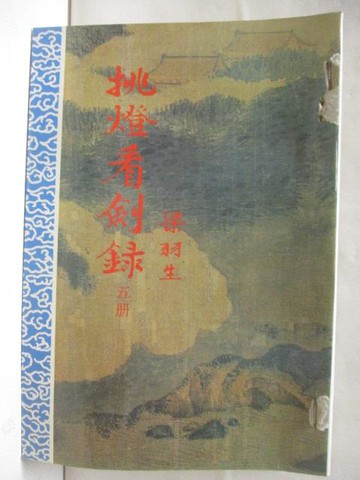 挑燈看劍錄
梁羽生
五册